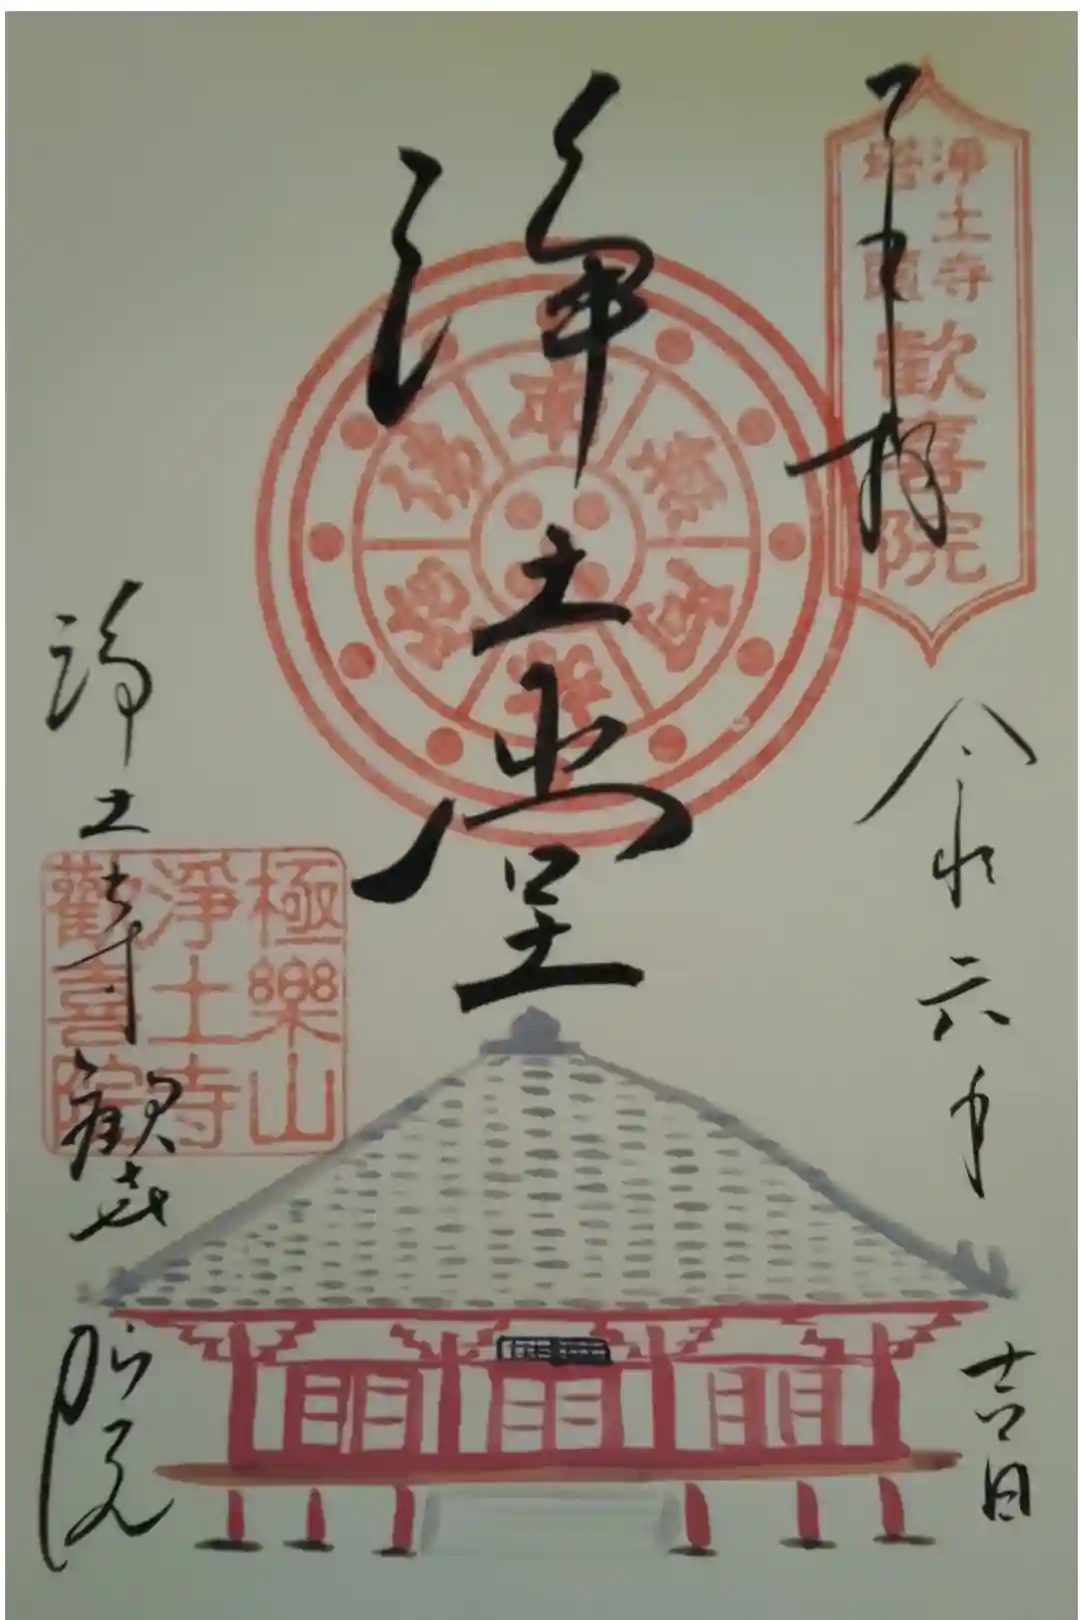 奉拝
浄土寺
塔頭
歓喜院
令和六年
吉日
浄土堂
南無阿弥陀佛
浄土寺歓喜院
極樂山
淨土寺
歡喜院